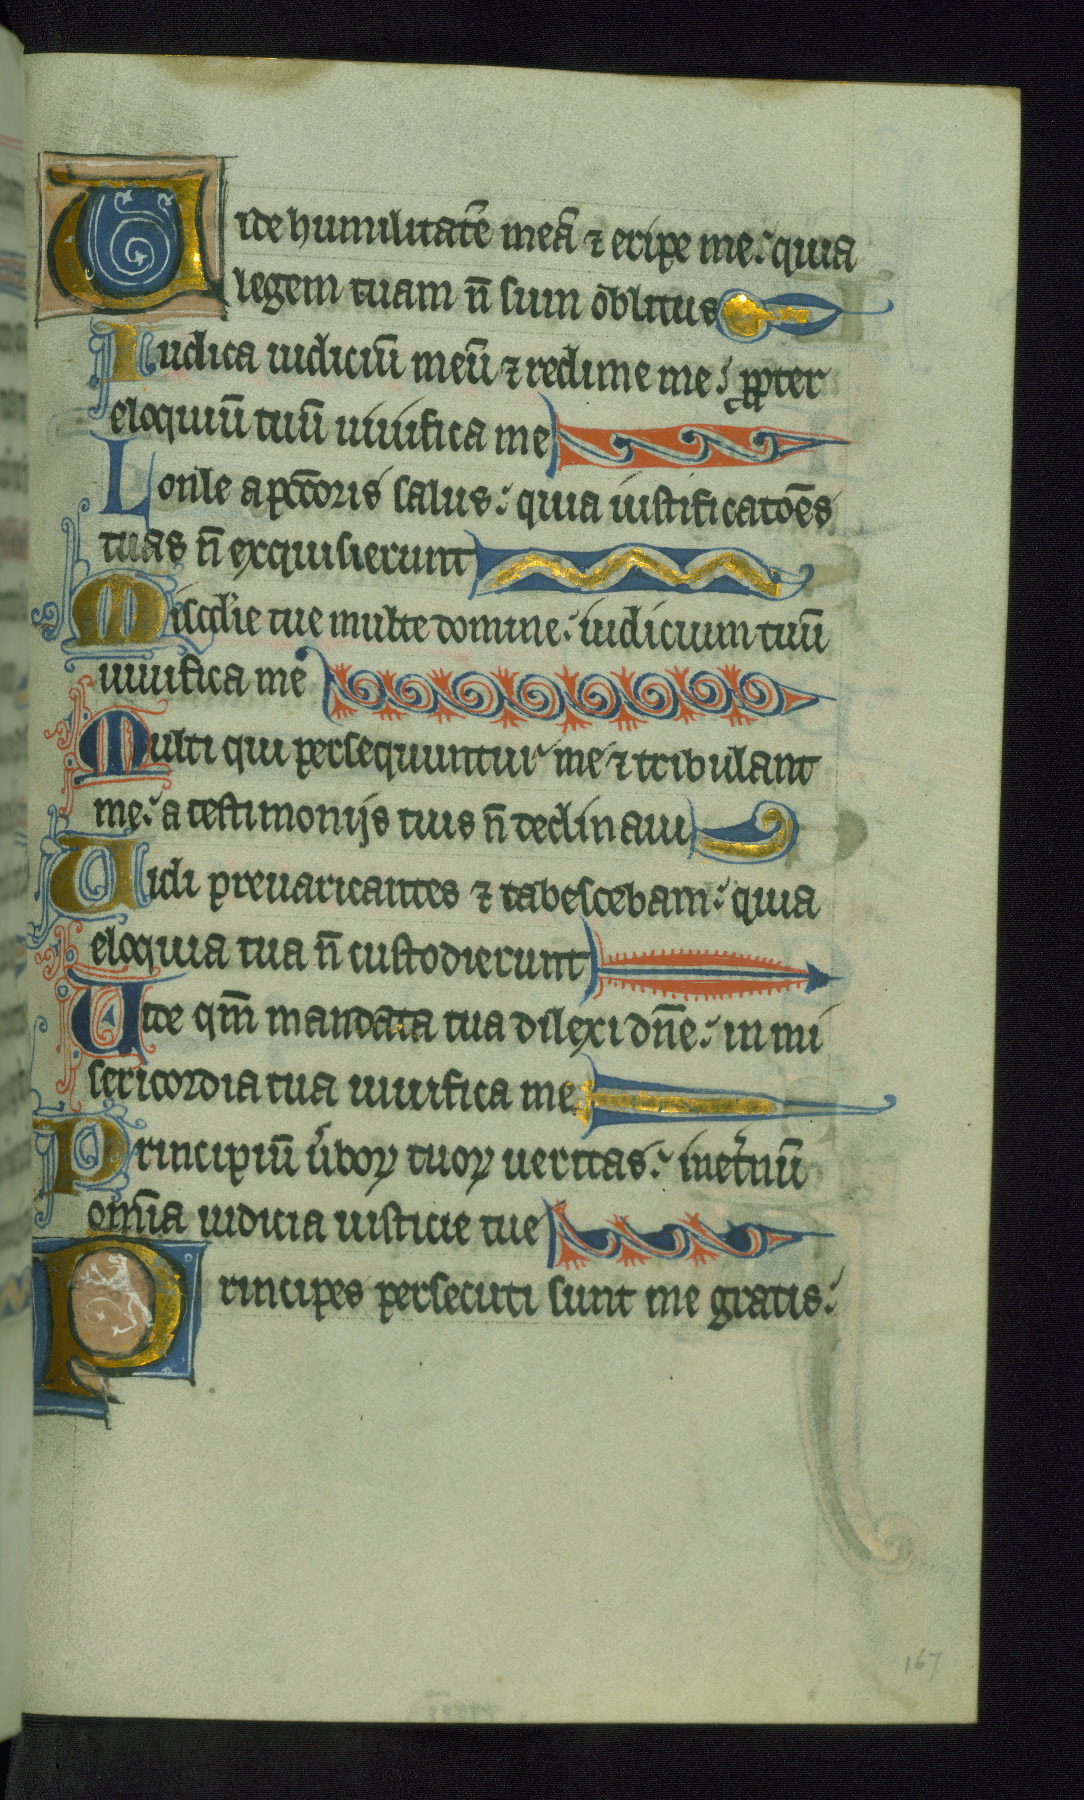 Vide humilitatē meā ⁊ eripe me: quia
legem tuam n̄ sum oblitus
Iudica iudiciū meū ⁊ redime me: ꝓpter
eloquiū tuū uiuifica me
Longe a pc̄c̄oris salus: quia iustificatōēs
tuas n̄ exquisierunt
Misc̄d'ie tue multe domine: iudicium tuū
uiuifica me
Multi qui persequuntur me ⁊ tribulant
me: a testimonijs tuis n̄ declinaui
Uidi preuaricantes ⁊ tabescebam: quia
eloquia tua n̄ custodierunt
Uide qm̄ mandata tua dilexi dn̄e: in mi
sericordia tua uiuifica me
Principiū ūboꝝ tuoꝝ ueritas: inet̄nū
om̄ia iudicia iusticie tue
Principes persecuti sunt me gratis:
167